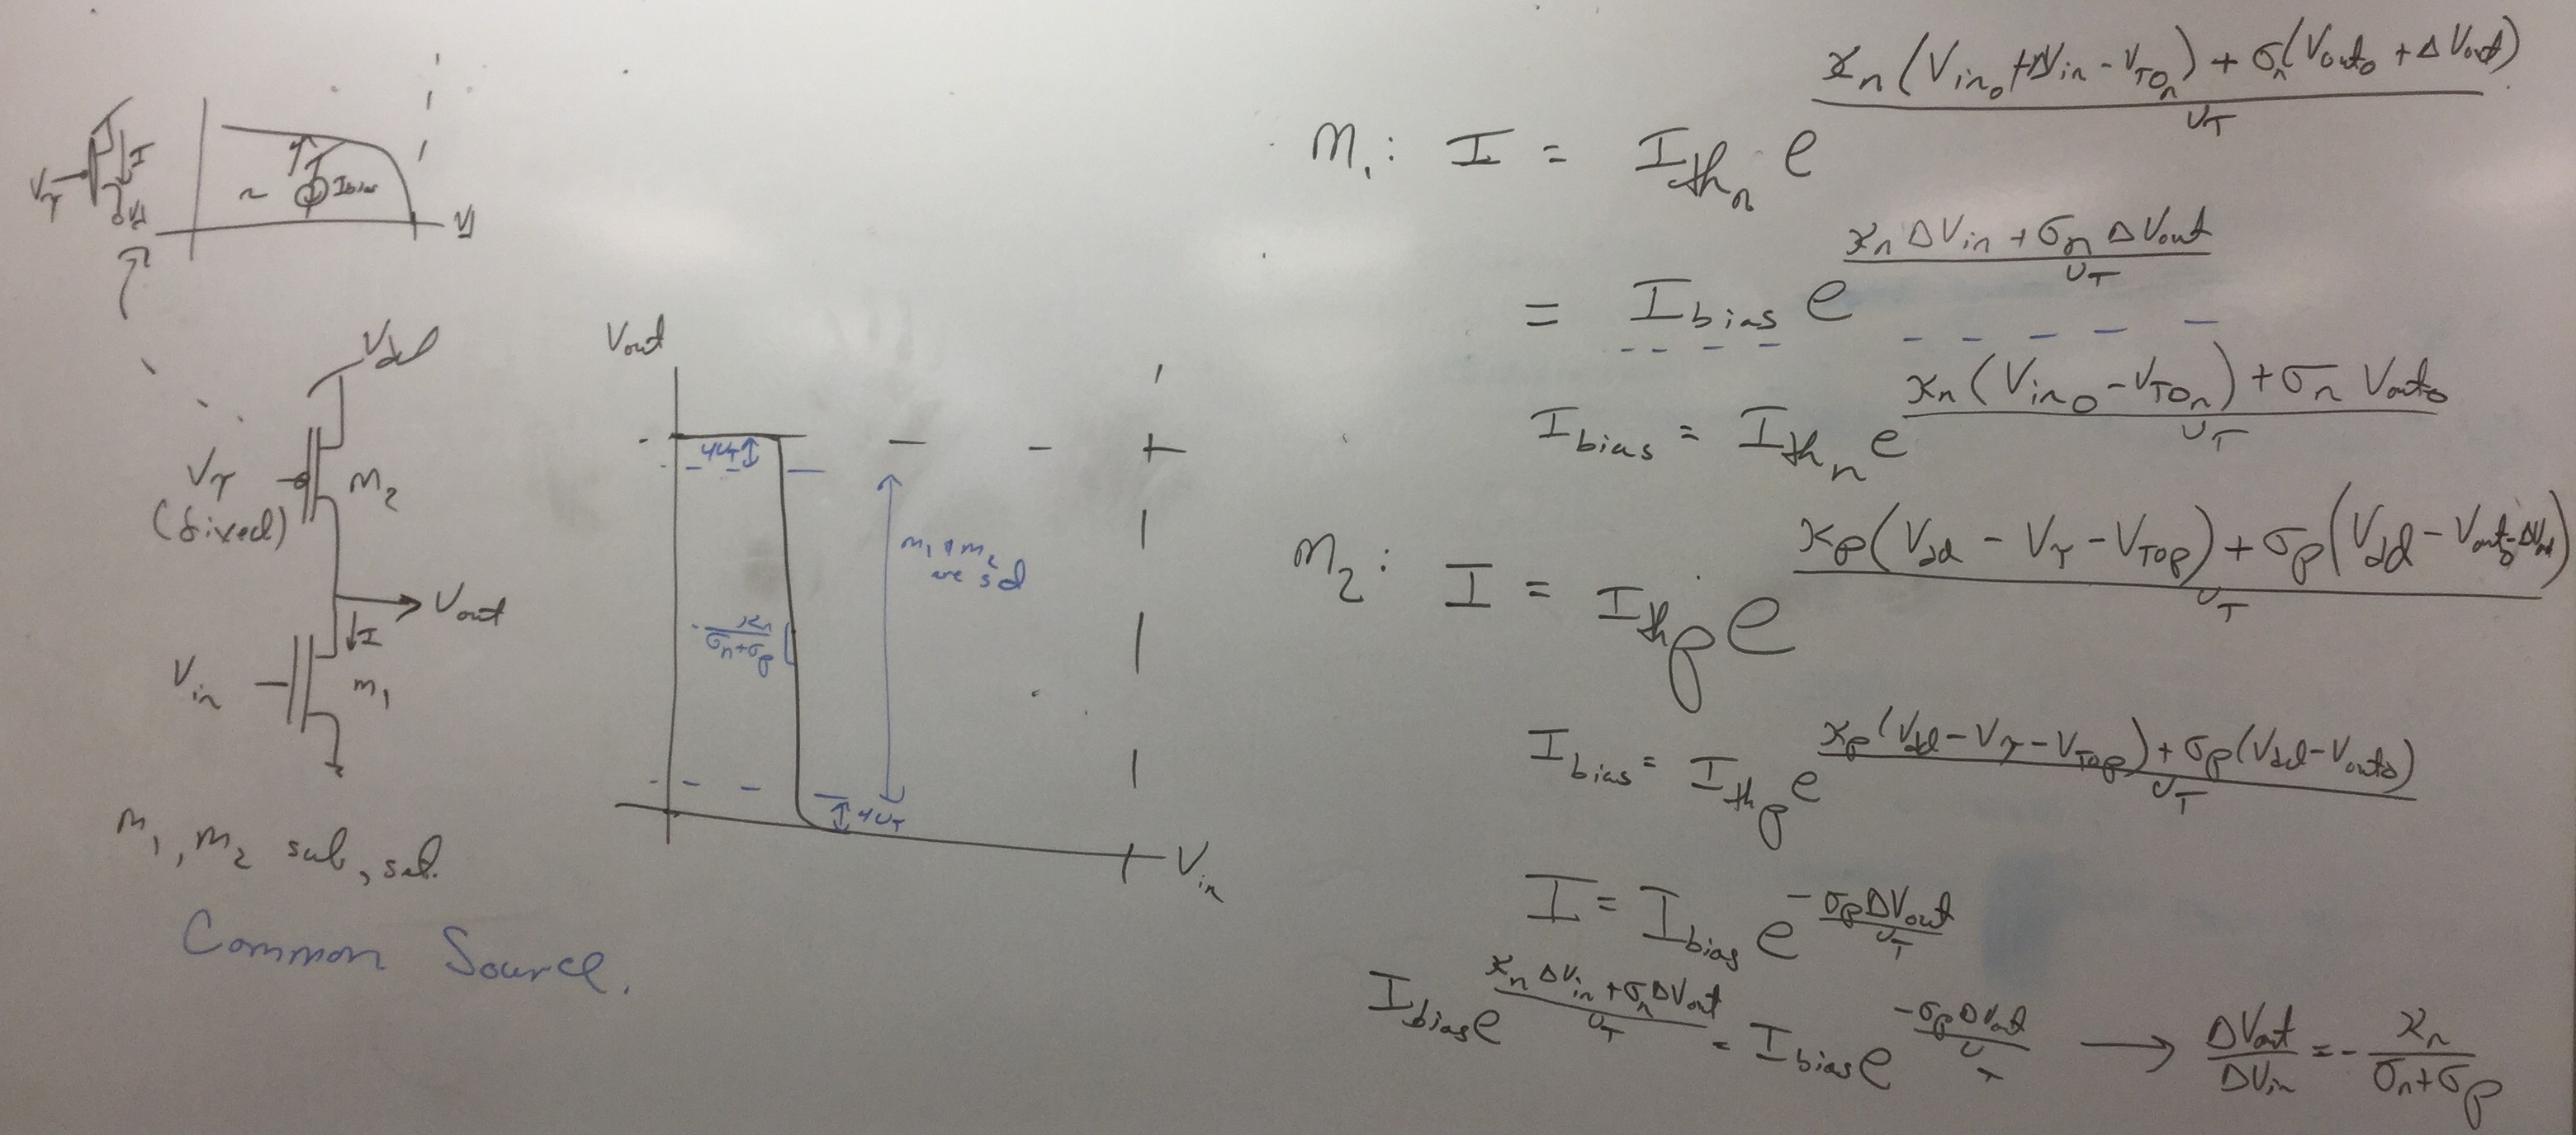 I
Vτ
Ibias
V1
Vdd
Vτ
(fixed)
M2
Vout
I
Vin
M1
M1, M2 sub, sat.
Common Source.
Vout
4UT
M1 & M2
are sat
κn / (σn+σp)
4UT
Vin
M1: I = Ithn e^((κn(Vin0 + ΔVin - VT0n) + σn(Vout0 + ΔVout)) / UT)
= Ibias e^((κn ΔVin + σn ΔVout) / UT)
Ibias = Ithn e^((κn(Vin0 - VT0n) + σn Vout0) / UT)
M2: I = Ithp e^((κp(Vdd - Vτ - VT0p) + σp(Vdd - Vout0 - ΔVout)) / UT)
Ibias = Ithp e^((κp(Vdd - Vτ - VT0p) + σp(Vdd - Vout0)) / UT)
I = Ibias e^(-σp ΔVout / UT)
Ibias e^((κn ΔVin + σn ΔVout) / UT) = Ibias e^(-σp ΔVout / UT) → ΔVout / ΔVin = - κn / (σn+σp)